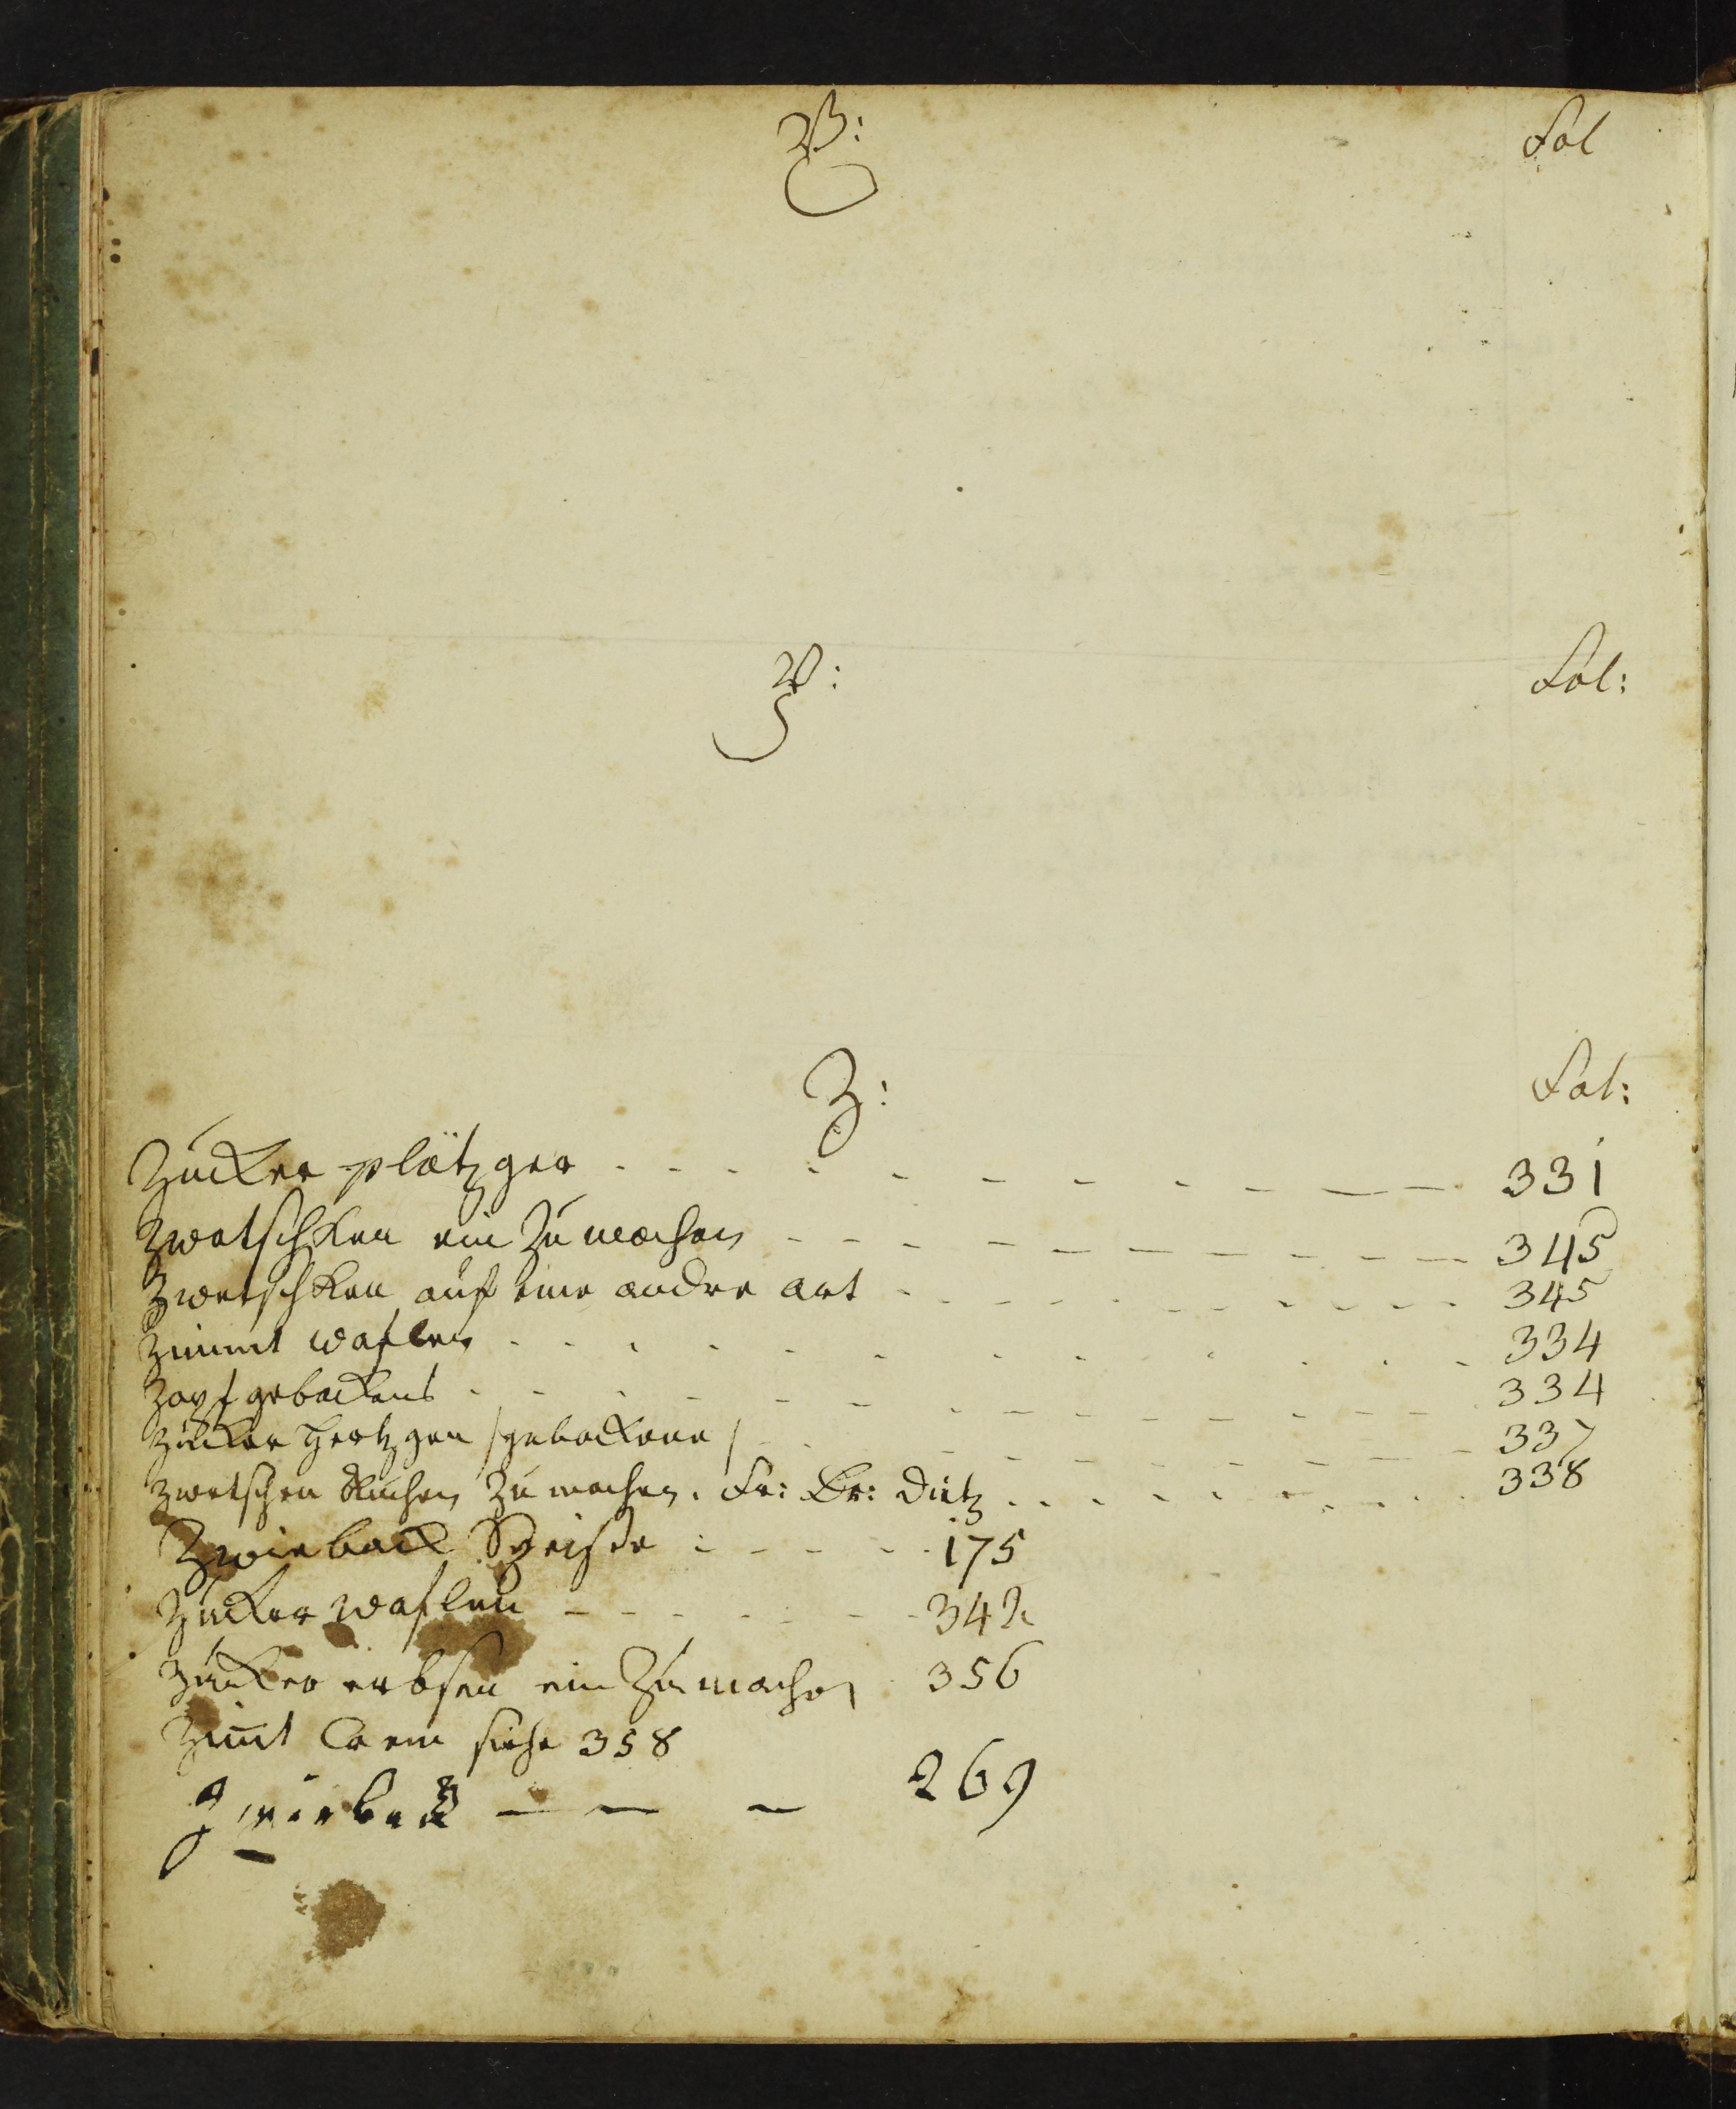 X: Fol
Y: Fol:
Z: Fol:
Zucker plätzger - - - - - - - - - - 331
Zwetschken ein Zu machen - - - - - - - - - - 345
Zwetschken auf eine andre art - - - - - - - - - - 345
Zimmt Waflen - - - - - - - - - - 334
Zopf gebackens - - - - - - - - - - 334
Zucker Hertzgen /gebackene/ - - - - - - - - 337
Zwetschen Kuchen Zu machen. Fr: Br: Dietz - - - - - - - 338
Zwieback Speise : - - - - - 175
Zucker Waflen - - - - - - - 342
Zucker erbsen ein Zu machen 356
Zim̅t Crem siehe 358
Zwieback — — — 269